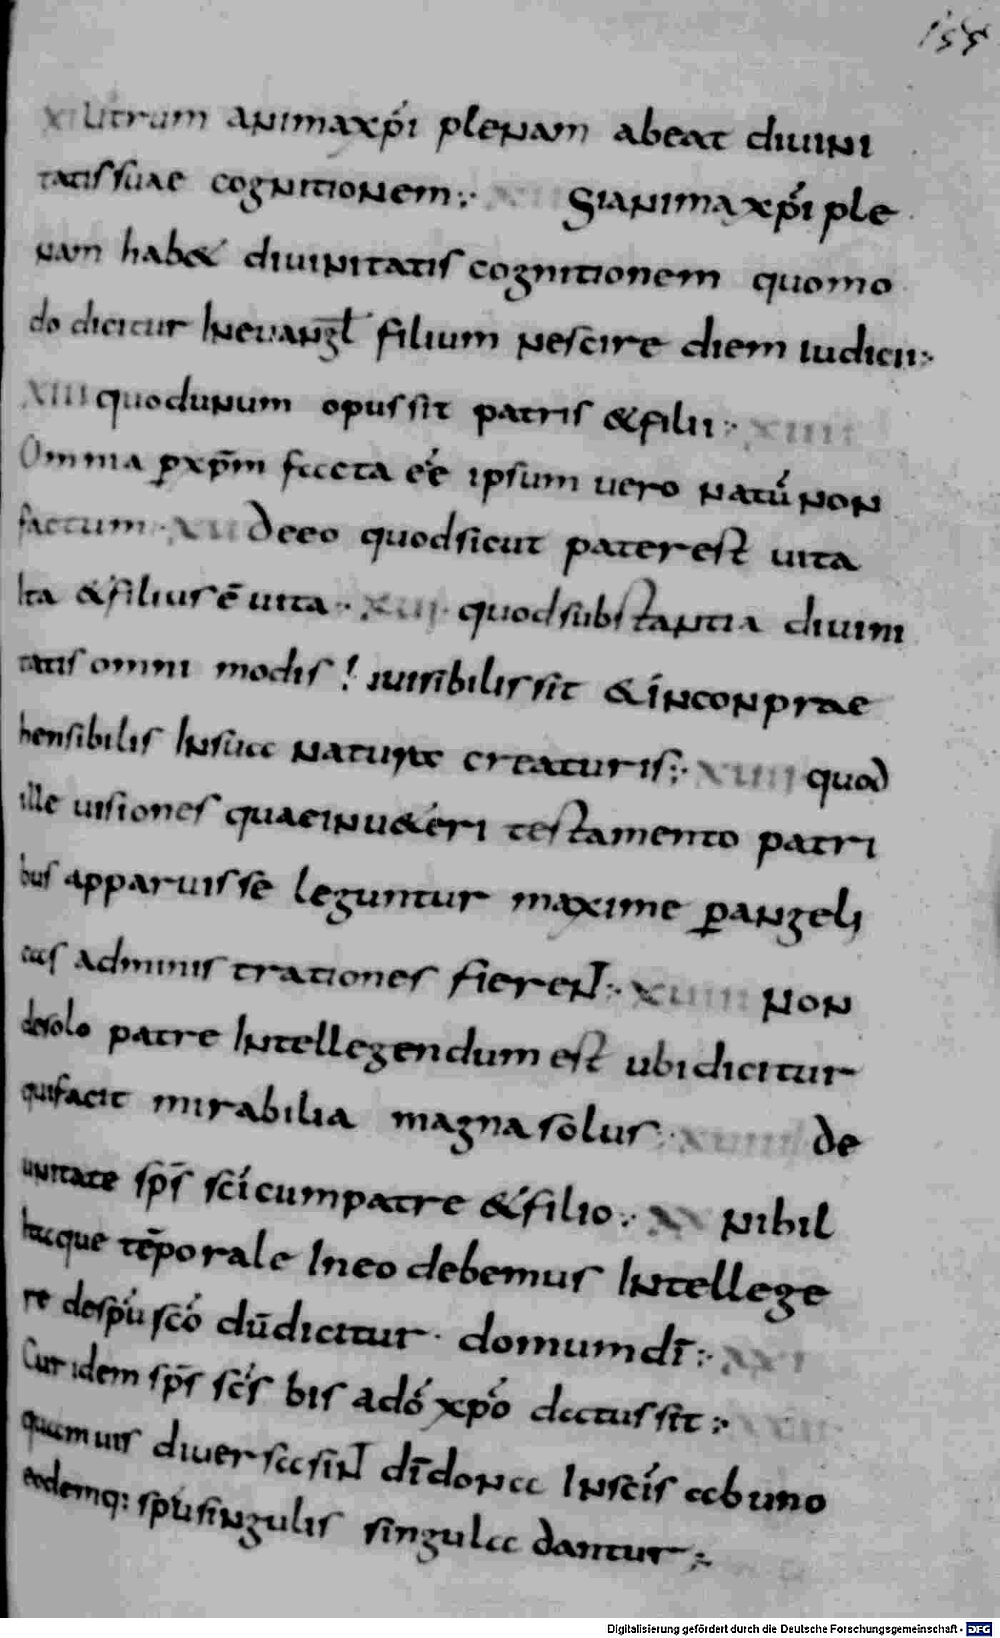 155
XI Utrum anima xp̄i plenam abeat diuini
tatis suae cognitionem;· XII Si anima xp̄i ple
nam hab& diuinitatis cognitionem quomo
do dicitur In euangł filium nescire diem iudicii;·
XIII quod unum opus sit patris & filii;· XIIII
Omnia ꝑ xp̄m facta eē ipsum uero natū non
factum· XV De eo quod sicut pater est uita
Ita & filius ē uita·. XVI· quod substantia diuini
tatis omni modis ! inuisibilis sit & inconprae
hensibilis In sua natura creaturis;· XVII quod
ille uisiones quae in u&eri testamento patri
bus apparuisse leguntur maxime ꝑ angeli
cas administrationes fierent;· XVIII Non
de solo patre Intellegendum est ubi dicitur
qui facit mirabilia magna solus·. XVIIII de
unitate sp̄s sc̄i cum patre & filio;· XX Nihil
hacque tēporale In eo debemus Intellege
re de sp̄u sc̄o dū dicitur· domum dī;· XXI
Cur idem sp̄s sc̄s bis a dō xp̄o datus sit;· XXII
quamuis diuersa sint dī dona In sc̄is ab uno
eodemq; sp̄u singulis singula dantur;·
Digitalisierung gefördert durch die Deutsche Forschungsgemeinschaft - DFG